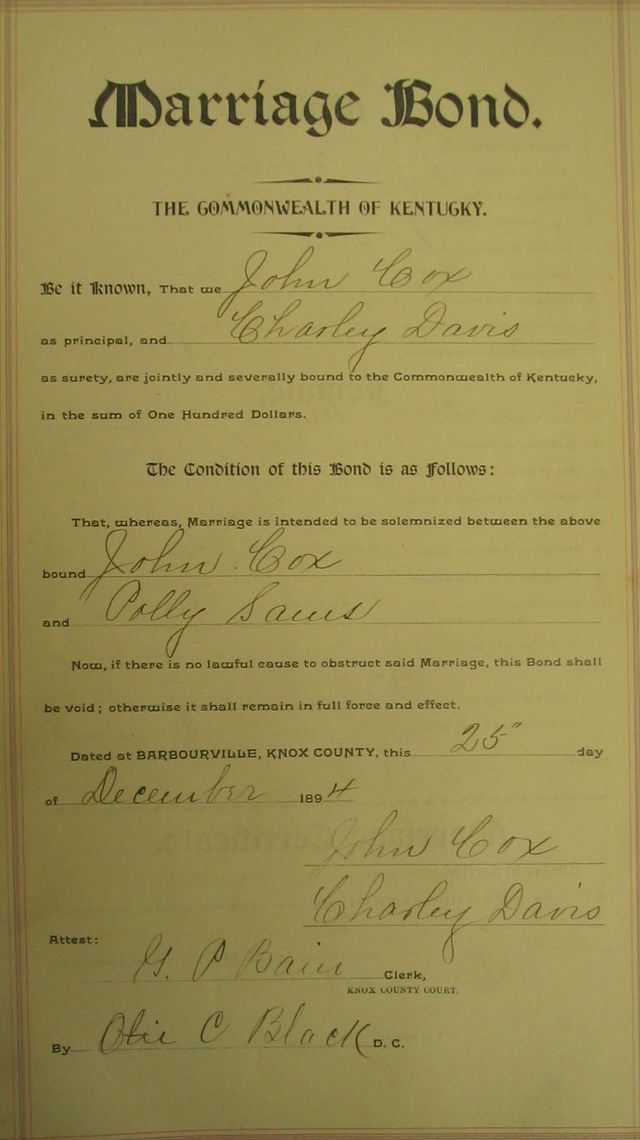 Marriage Bond.
THE COMMONWEALTH OF KENTUCKY.
Be it Known, That we John Cox
as principal, and Charley Davis
as surety, are jointly and severally bound to the Commonwealth of Kentucky,
in the sum of One Hundred Dollars.
The Condition of this Bond is as Follows:
That, whereas, Marriage is intended to be solemnized between the above
bound John Cox
and Polly Sams
Now, if there is no lawful cause to obstruct said Marriage, this Bond shall
be void; otherwise it shall remain in full force and effect.
Dated at BARBOURVILLE, KNOX COUNTY, this 25" day
of December 1894
John Cox
Charley Davis
Attest:
G. P Bain Clerk,
KNOX COUNTY COURT.
By C Black D. C.